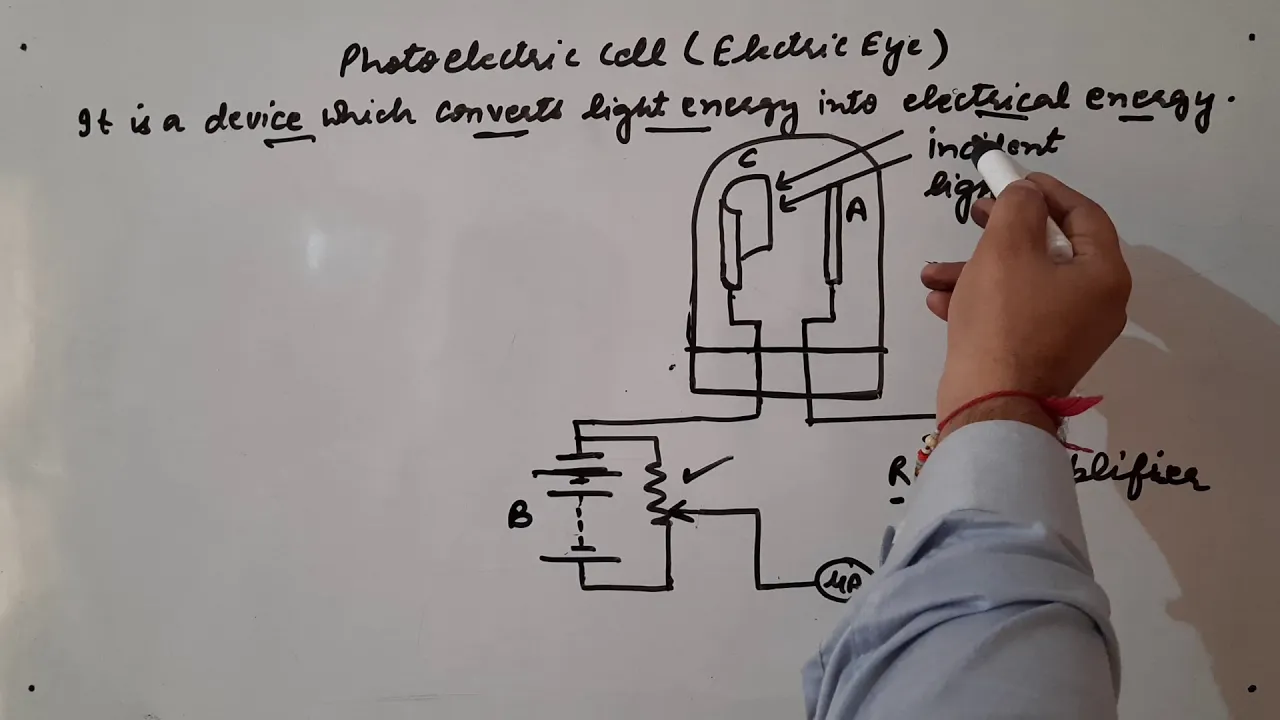 Photoelectric Cell (Electric Eye)
It is a device which converts light energy into electrical energy.
incident
C
A
R
B
μA